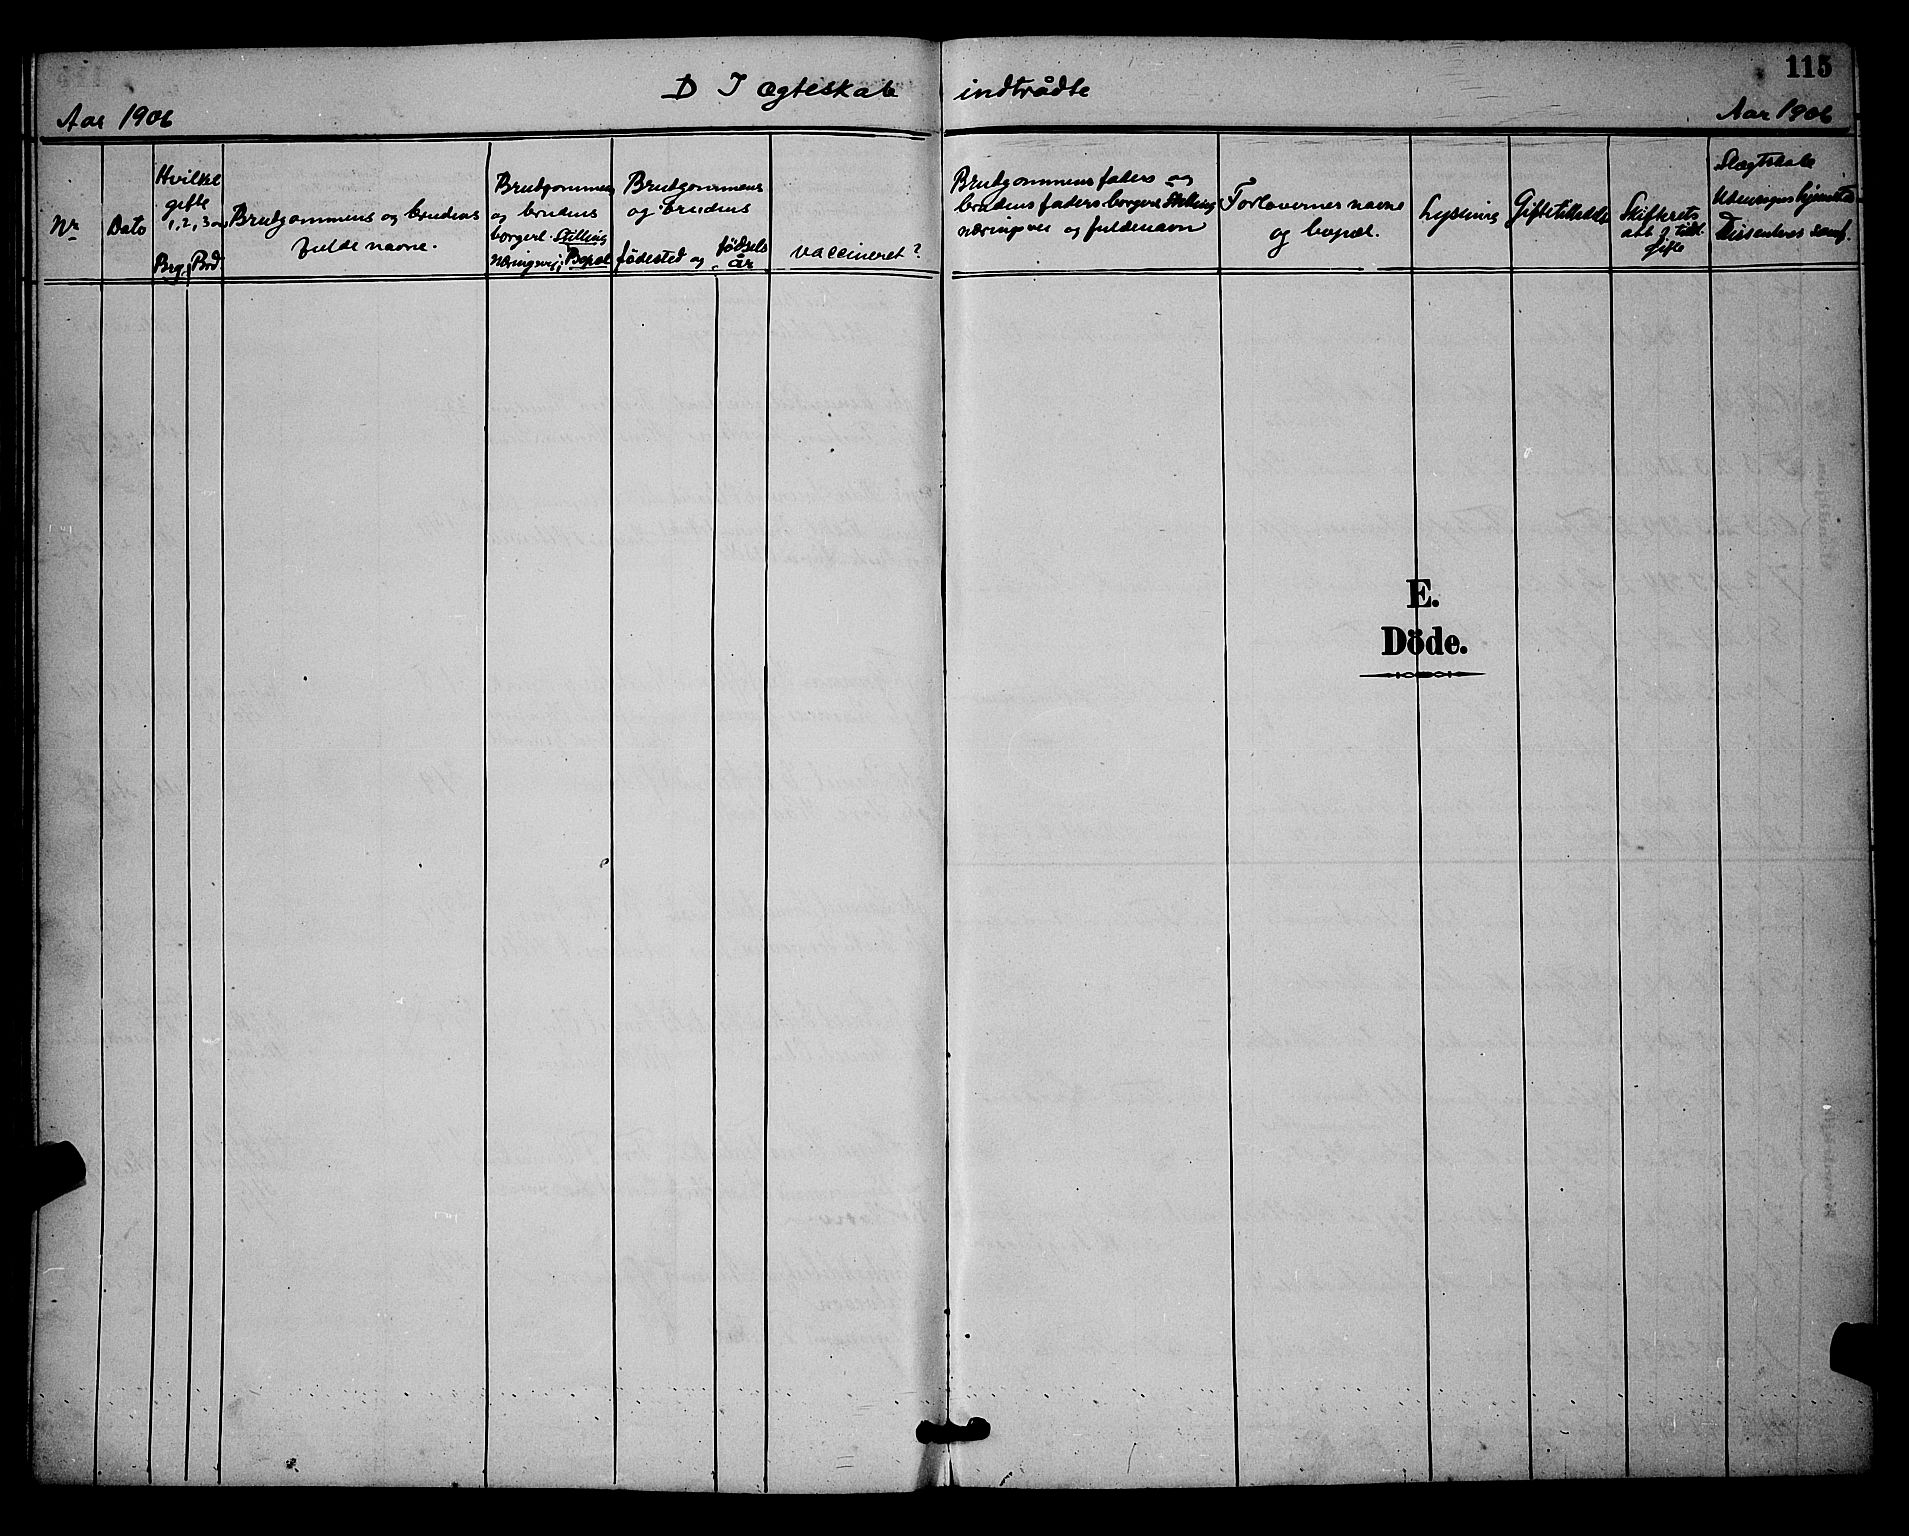 115
D I ægteskab indtrådte
Aar 1906
Aar 1906
Nr
Dato
Hvilket
gifte
1, 2, 3 o.s.
Brg. Brd.
Brudgommens og brudens
fulde navne.
Brudgommens
og brudens
borgerl. Stilling
Næringsvej, Bopæl
Brudgommens
og brudens
fødested og fødsels
år
vaccineret?
Brudgommens faders og
brudens faders borgerl. Stilling
næringsvei og fulde navn
Forlovernes navne
og bopæl.
Lysning
Giftetilladelse
Skifterets
att. til
gifte
Slægtskab
Udensogns hjemsted
Dissenteres samf.
E.
Döde.